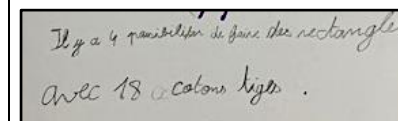 Il y a 4 possibiliter de faire des rectangle
avec 18 cotons tiges .